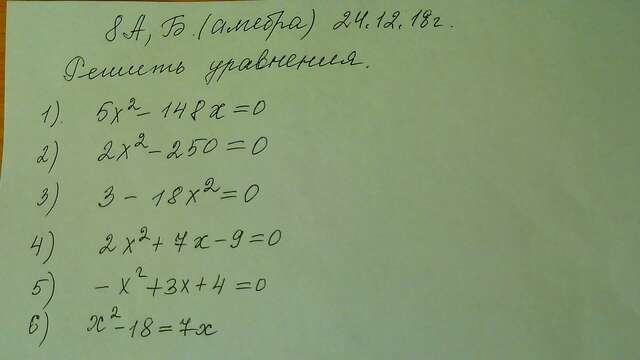 8А, Б. (алгебра) 24.12.18г.
Решить уравнения.
1). 5x² - 148x = 0
2) 2x² - 250 = 0
3) 3 - 18x² = 0
4) 2x² + 7x - 9 = 0
5) - x² + 3x + 4 = 0
6) x² - 18 = 7x